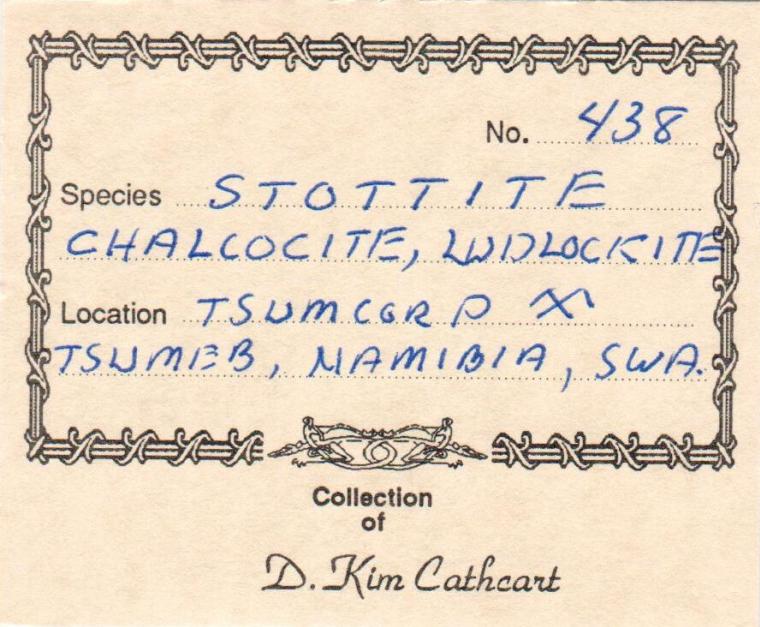 No. 438
Species STOTTITE
CHALCOCITE, LUDLOCKITE
Location TSUMCORP ⚒
TSUMEB, NAMIBIA, SWA.
Collection
of
D. Kim Cathcart